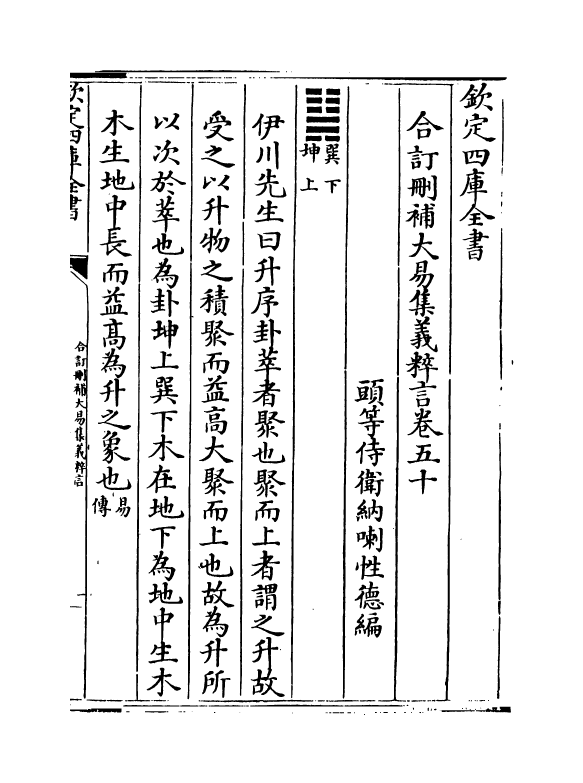 欽定四庫全書
合訂刪補大易集義粹言卷五十
頭等侍衛納喇性德編
巽下
坤上
伊川先生曰升序卦萃者聚也聚而上者謂之升故
受之以升物之積聚而益高大聚而上也故為升所
以次於萃也為卦坤上巽下木在地下為地中生木
木生地中長而益髙為升之象也易傳
欽定四庫全書
合訂刪補大易集義粹言
一